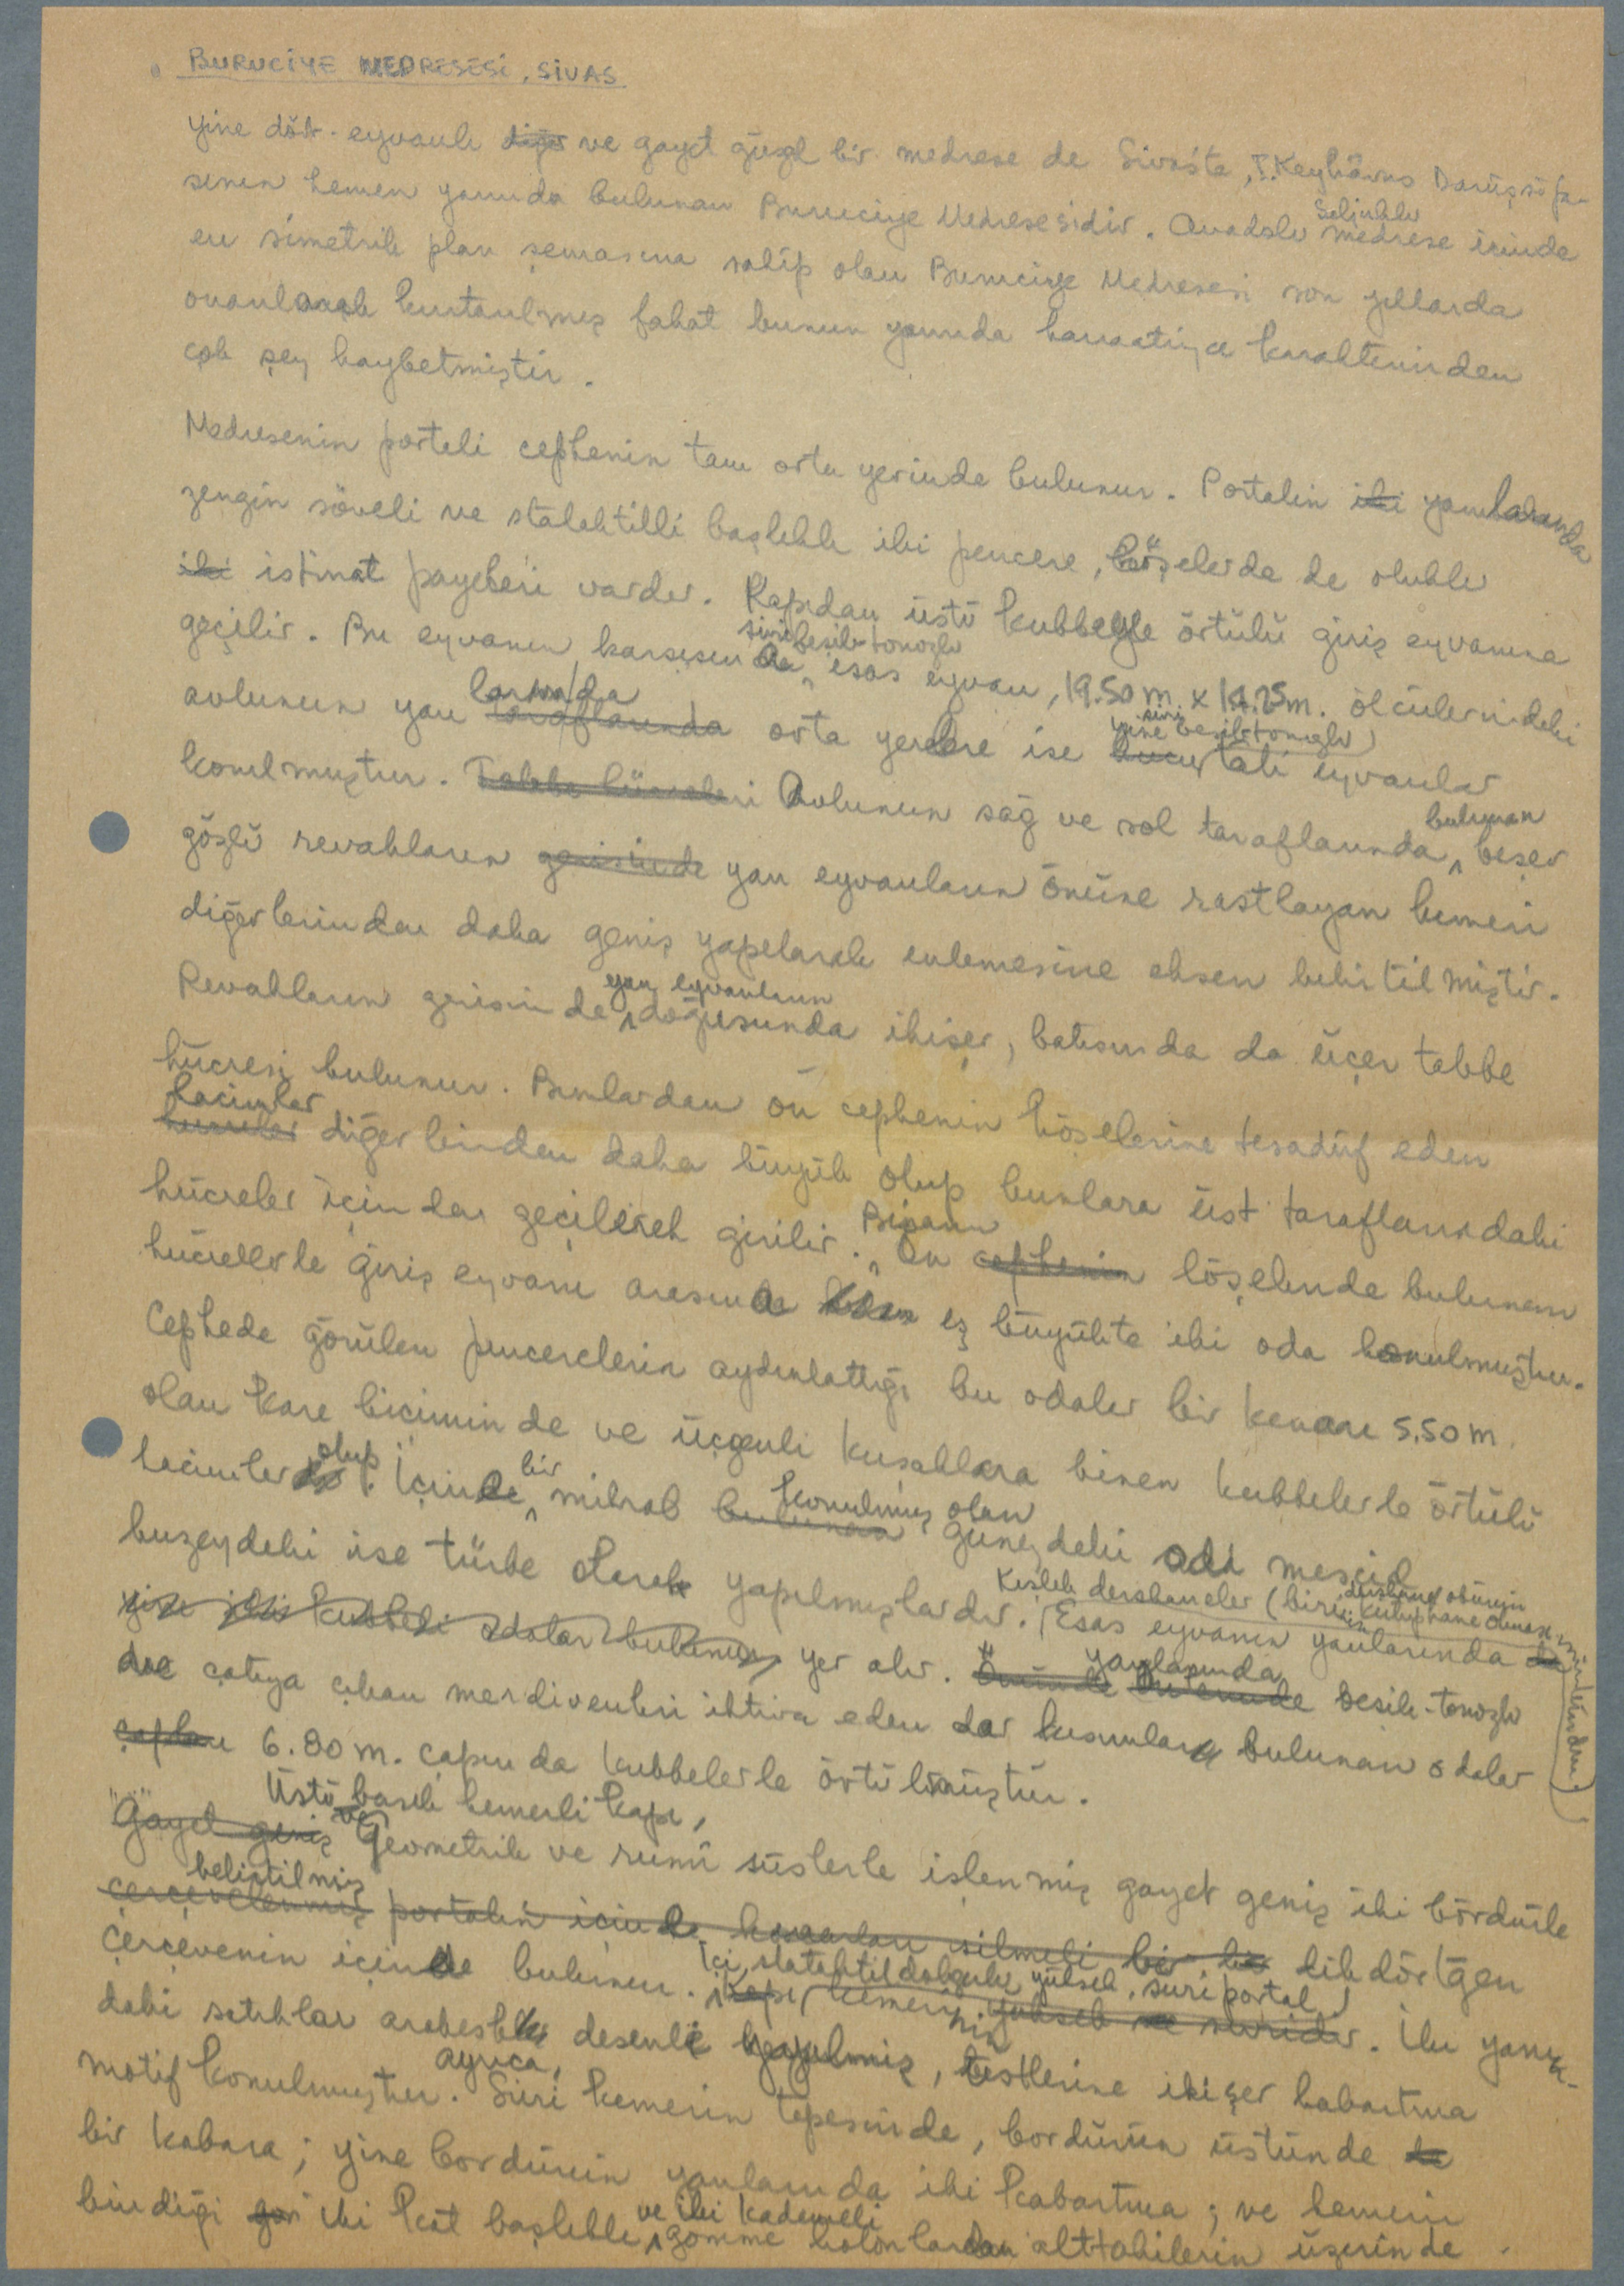 BURUCİYE MEDRESESİ, SİVAS
Yine dört-eyvanlı diğer ve gayet güzel bir medrese de Sivas'ta, I. Keykâvus Darüşşifa-
sının hemen yanında bulunan Buruciye Medresesidir. Anadolu Selçuklu medrese içinde
en simetrik plan şemasına sahip olan Buruciye Medresesi son yıllarda
onarılarak kurtarılmış fakat bunun yanında kanaatimce karakterinden
çok şey kaybetmiştir.
Medresenin portali cephenin tam orta yerinde bulunur. Portalin iki yanlarında
zengin söveli ve stalaktitli başlıklı iki pencere, köşelerde de oluklu
iki istinat payeleri vardır. Kapıdan üstü kubbeyle örtülü giriş eyvanına
geçilir. Bu eyvanın karşısında sivri beşik-tonozlu esas eyvan, 19.50 m. x 14.25 m. ölçülerindeki
avlunun yan taraflarında kanatlarında orta yerlere ise yine sivri beşik-tonozlu tali eyvanlar
konulmuştur. Talebe hücreleri Avlunun sağ ve sol taraflarında bulunan beşer
gözlü revakların gerisinde yan eyvanların önüne rastlayan kemeri
diğerlerinden daha geniş yapılarak enlemesine eksen belirtilmiştir.
Revakların gerisinde yan eyvanların doğusunda ikişer, batısında da üçer talebe
hücresi bulunur. Bunlardan ön cephenin köşelerine tesadüf eden
hücreler hacimler diğerlerinden daha büyük olup bunlara üst taraflarındaki
hücreler içinden geçilerek girilir. Binanın ön cephenin köşelerinde bulunan
hücrelerle giriş eyvanı arasında eş büyükte iki oda konulmuştur.
Cephede görülen pencerelerin aydınlattığı bu odalar bir kenarı 5.50 m.
olan kare biçiminde ve üçgenli kuşaklara binen kubbelerle örtülü
hacimler olup. İçinde bir mihrab bulunan konulmuş olan güneydeki oda mescid
kuzeydeki ise türbe olarak yapılmışlardır. Esas eyvanın yanlarında da
yine iki kubbeli odalar bulunur, kışlık dershaneler (birinin dershane öbürünün kütüphane olması mümkündür.) yer alır. Önünde yanlarında beşik-tonozlu
ve çatıya çıkan merdivenleri ihtiva eden dar kısımlar bulunan odalar
çapları 6.80 m. çapında kubbelerle örtülmüştür.
Üstü basık kemerli kapı,
Gayet geniş ve Geometrik ve rumî süslerle işlenmiş gayet geniş iki bordürle
çerçevelenmiş belirtilmiş portalin içinde kenarları silmeli bir dikdörtgen
çerçevenin içinde bulunur. İçi stalaktit dolgulu, yüksek, sivri portal kemerinin yüksek ve sivridir. İki yanın-
daki satıhlar arabesk desenli yapılmış, üstlerine ikişer kabartma
motif konulmuştur. ayrıca, Sivri kemerin tepesinde, bordürün üstünde
bir kabara; yine bordürün yanlarında iki kabartma; ve kemerin
bindiği iki kat başlıklı ve iki kademeli gömme kolonlardan alttakilerin üzerinde